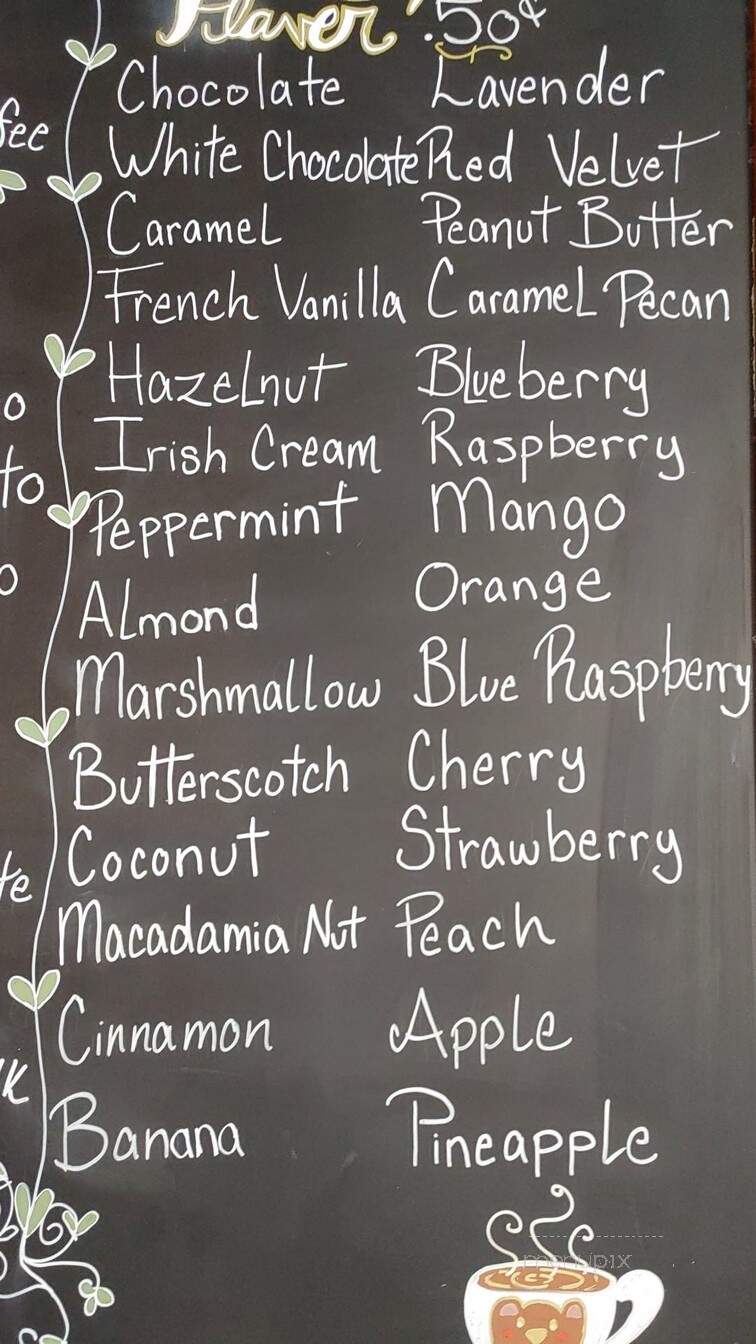 Flaver .50¢
Chocolate Lavender
fee
White Chocolate Red Velvet
Caramel Peanut Butter
French Vanilla Caramel Pecan
Hazelnut Blueberry
o
Irish Cream Raspberry
to
Peppermint Mango
o
Almond Orange
Marshmallow Blue Raspberry
Butterscotch Cherry
Coconut Strawberry
te
Macadamia Nut Peach
Cinnamon Apple
k
Banana Pineapple
menupix